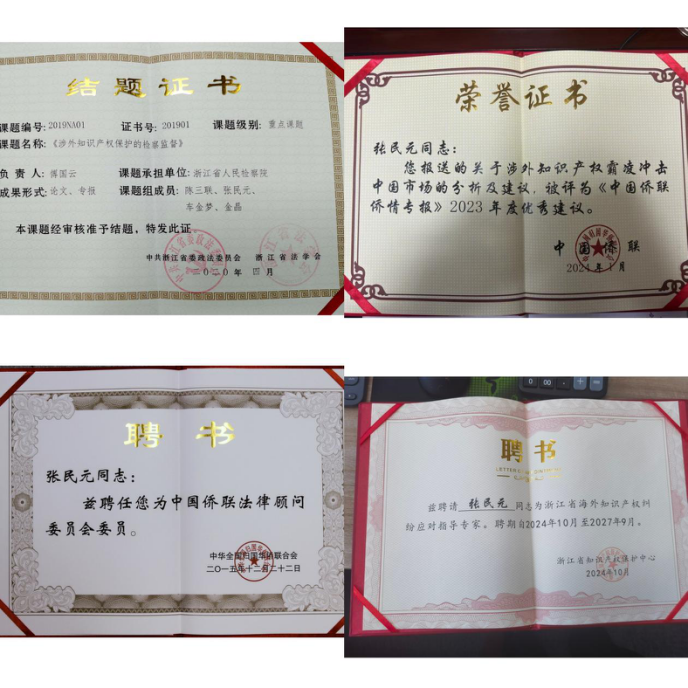 结题证书
课题编号：2019NA01 证书号：201901 课题级别：重点课题
课题名称：《涉外知识产权保护的检察监督》
负责人 傅国云 课题承担单位：浙江省人民检察院
成果形式：论文、专报 课题组成员：陈三联、张民元、
车金梦、金晶
本课题经审核准予结题，特发此证
中共浙江省委政法委员会 浙江省法学会
二〇二〇年四月
荣誉证书
张民元同志：
您报送的关于涉外知识产权霸凌冲击
中国市场的分析及建议，被评为《中国侨联
侨情专报》2023年度优秀建议。
中国侨联
2024年1月
聘书
张民元同志：
兹聘任您为中国侨联法律顾问
委员会委员。
中华全国归国华侨联合会
二〇一五年十二月二十二日
聘书
兹聘请 张民元 同志为浙江省海外知识产权纠
纷应对指导专家。聘期自2024年10月至2027年9月。
浙江省知识产权保护中心
2024年10月